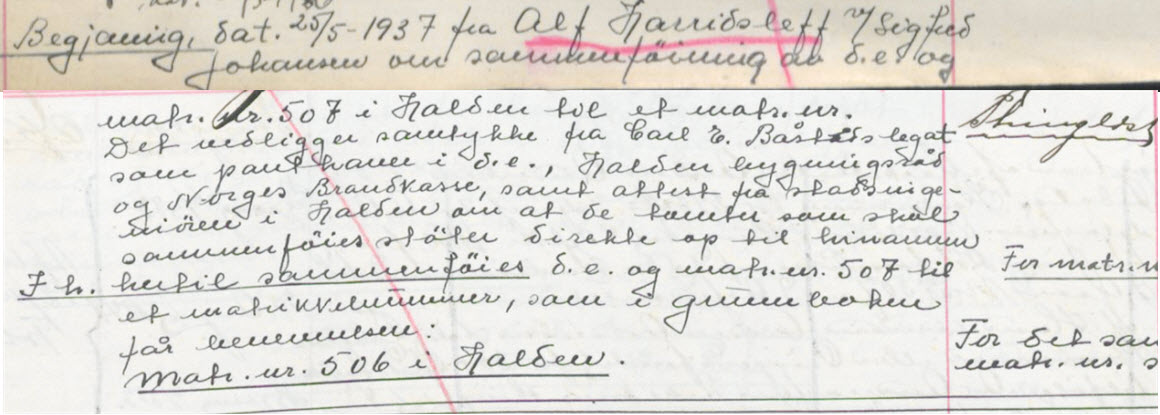 Begjæring, dat. 25/5-1937 fra Alf Harridsleff v/Sigfred
Johansen om sammenföining av d.e. og
matr. nr. 507 i Halden til et matr. nr.
Det vedligger samtykke fra Carl E. legat
som panthaver i d.e., Halden bygningsråd
og Norges Brandkasse, samt attest fra stadsinge-
niören i Halden om at de tomter som skal
sammenföies stöter direkte op til hinannen
I h. hertil sammenföies d.e. og matr. nr. 507 til
et matrikkelnummer, som i grunnboken
får benevnelsen:
Matr. nr. 506 i Halden.
For matr. n
For det sam
matr. nr. 5